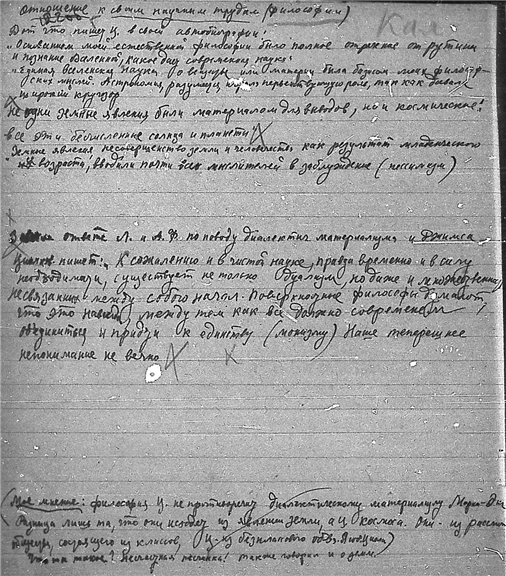 Отношение к своим научным трудам (философии)
Вот что пишет Ц. в своей автобиографии:
"Основанием моей естественной философии было полное отречение от рутины
и познание Вселенной, какое дает современная наука"
"Единая вселенская наука о веществе или материи была базисом моих философ-
ских мыслей. Астрономия, разумеется, играла первенствующую роль, так как давала
широкий кругозор
Не одни земные явления были материалом для выводов, но и космические:
все эти бесчисленные солнца и планеты"
"Земные явления несовершенство земли и человечества как результат младенческого
их возраста, вводили почти всех мыслителей в заблуждение (пессимизм)
ответе Л. и А. Ф. по поводу диалектич материализма и Джинса
пишет: "К сожалению и в чистой науке, правда временно и в силу
необходимости, существует не только дуализм, но даже и множественных
несвязанных между собою начал. Поверхностные философы думают,
что это навсегда, между тем как все должно современем
объединиться и придти к единству (монизму) Наше теперешнее
непонимание не вечно
(Мое мнение: философия Ц. не противоречит диалектическому материализму
Разница лишь та, что они исходят из явлений земли, а Ц из космоса. Они - из
состоящего из классов, Ц. из безклассового
Что такое? Несчастная песчинка! также говорил и о земле.